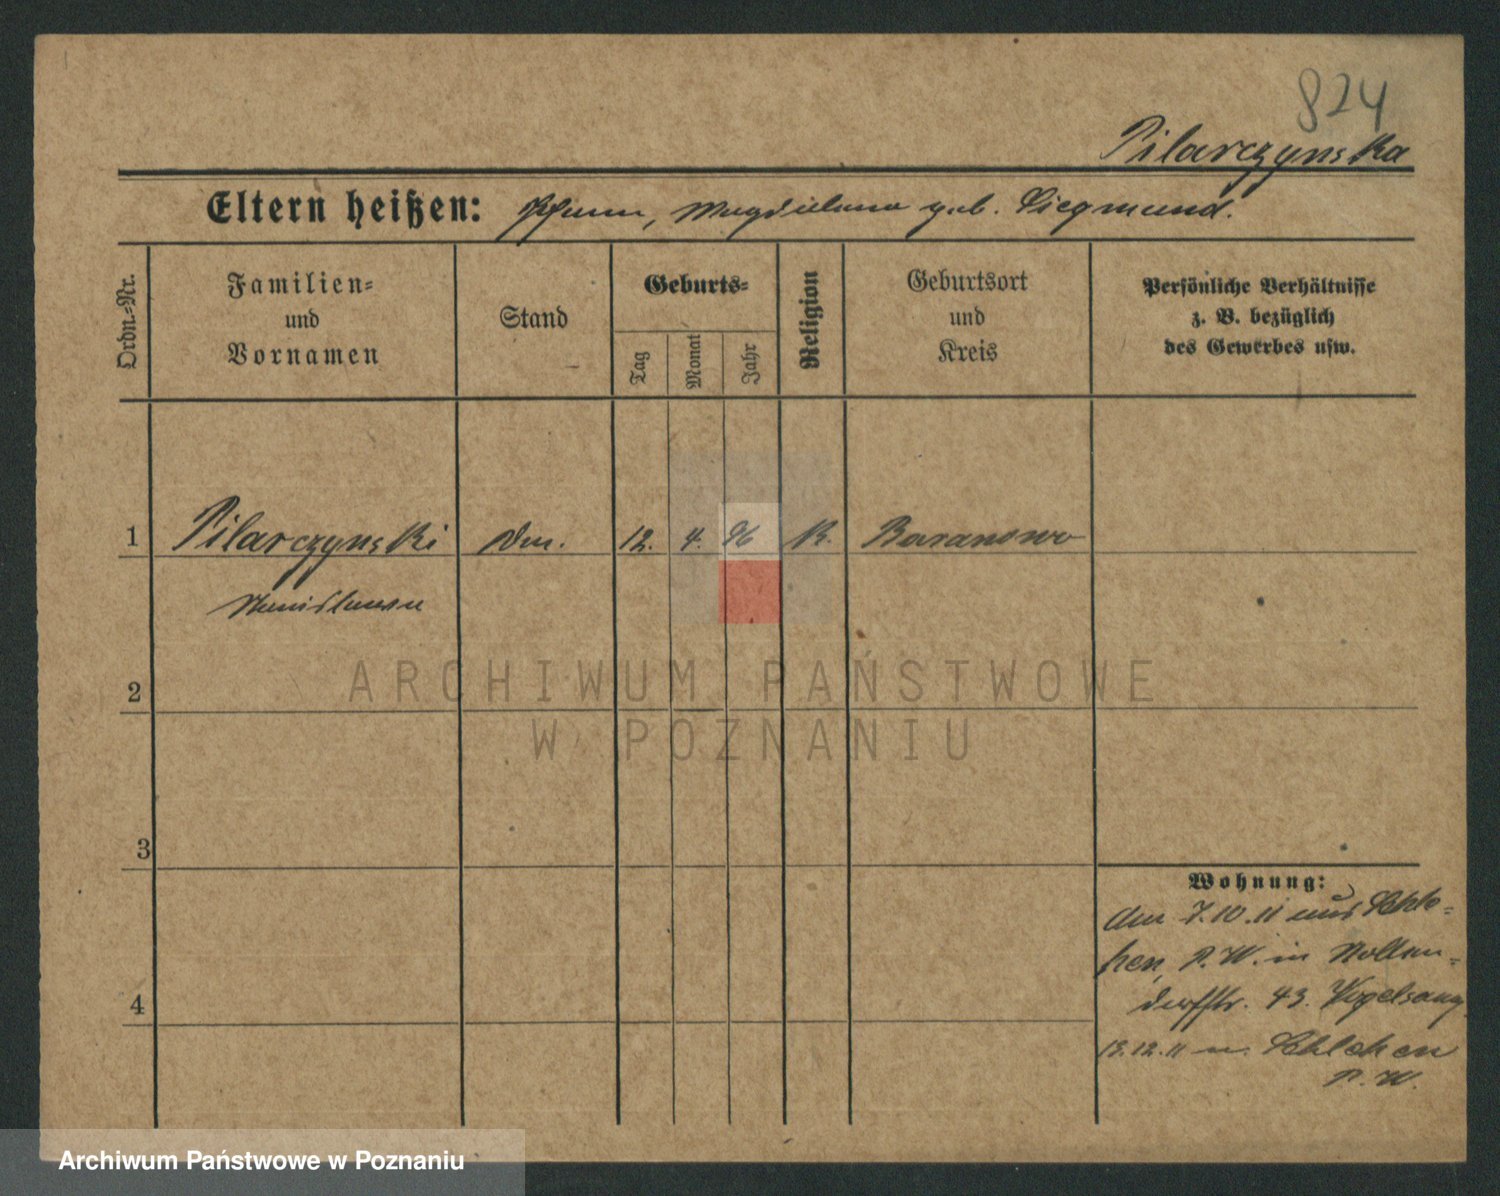 824
Pilarczynska
Eltern heißen: Johann, Magdalena geb. Siegmund.
Ordn.-Nr.
Familien-
und
Vornamen
Stand
Geburts-
Tag
Monat
Jahr
Religion
Geburtsort
und
Kreis
Persönliche Verhältnisse
z. B. bezüglich
des Gewerbes usw.
1 Pilarczynski 12. 4. 96 K. Baranowo
Stanislawa
2
3
4
Wohnung:
Am 7.10.11 aus Schle-
hen, P. W. in Nollen-
dorffstr. 43. Vogelsang
13.12.11 n. Schlehen
P. W.
ARCHIWUM PAŃSTWOWE
W POZNANIU
Archiwum Państwowe w Poznaniu